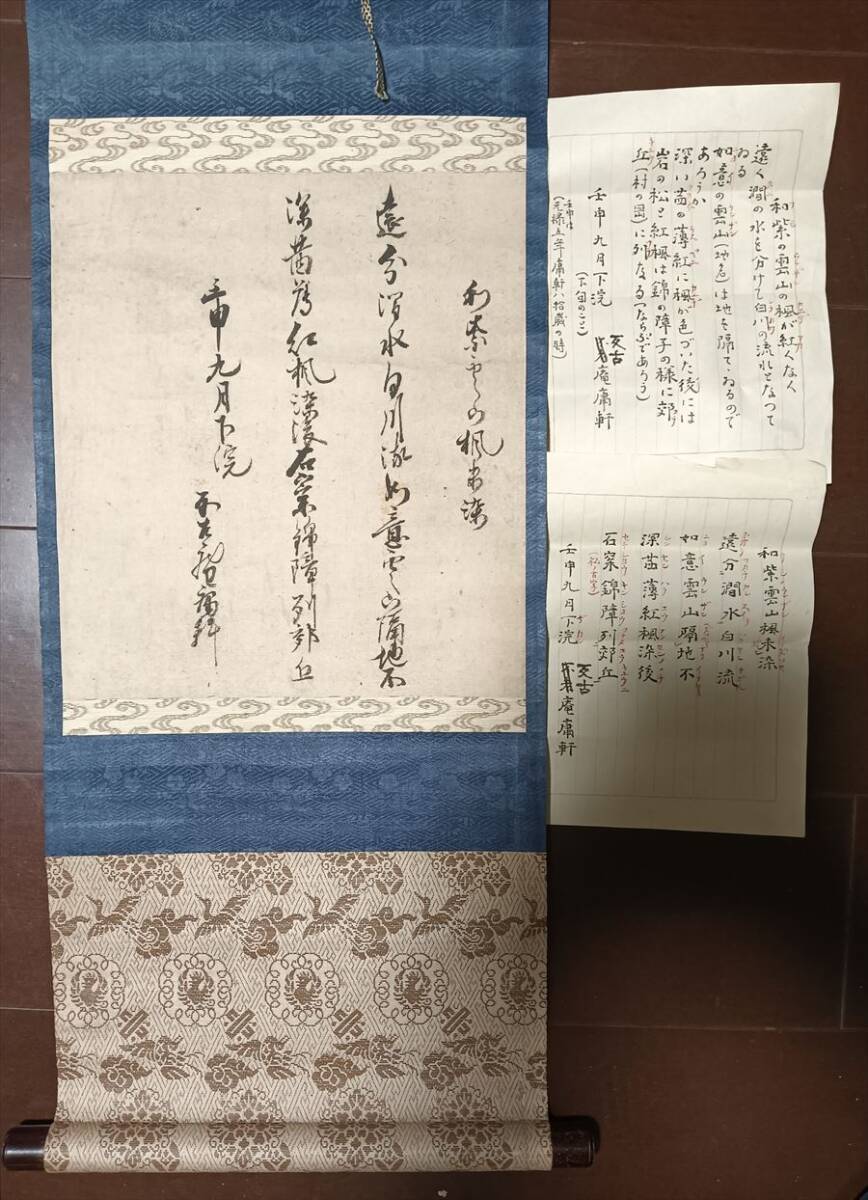 和紫雲山楓未染
遠分澗水白川流如意雲山隔地不
深茜薄紅楓染後石窠錦障列郊丘
壬申九月下浣
和紫の雲山の楓が紅くなく
遠く澗の水を分けて白川の流れとなつて
ゐる
如意の雲山(地名)は地を隔てゝゐるので
あろうか
深い茜の薄紅に楓が色づいた後には
岩の松と紅楓は錦の障子の様に郊
丘(村の岡)に列なる(つらなぶであろう)
壬申九月下浣 反古庵庸軒
(下旬のこと)
(壬申は
元禄五年庸軒八拾歳の時)
和紫雲山楓未染
遠分澗水白川流
如意雲山隔地不
深茜薄紅楓染後
石窠錦障列郊丘
壬申九月下浣 反古庵庸軒